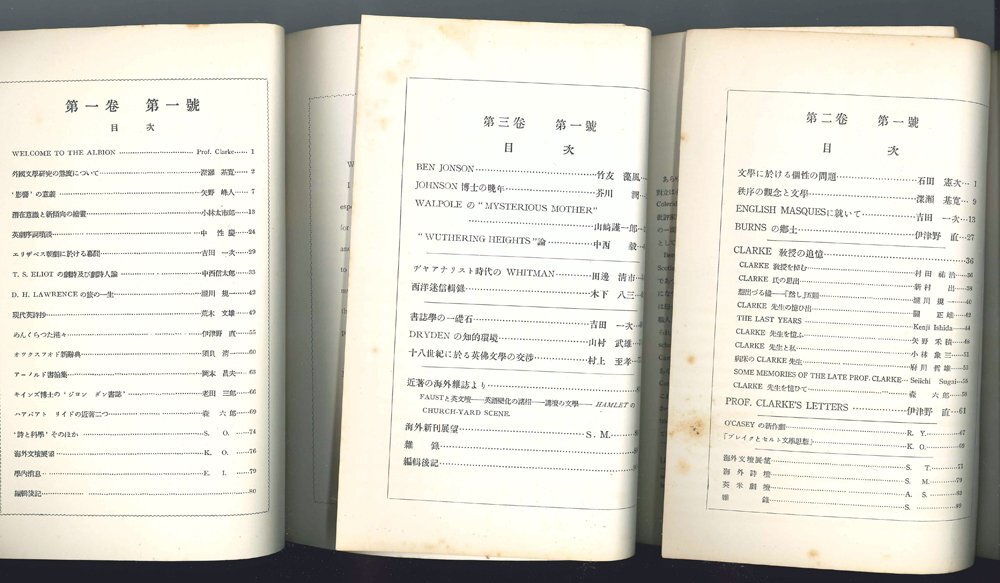 第一卷 第一號
目 次
WELCOME TO THE ALBION Prof. Clarke 1
外國文學研究の態度について 深瀬 基寛 2
‘影響’の意義 矢野 峰人 7
潛在意識と新傾向の繪畫 小林太市郎 13
英劇序詞瑣談 中 性慶 24
エリザベス朝劇に於ける幕間 吉田 一次 29
T. S. ELIOT の劇詩及び劇詩人論 中西信太郎 33
D. H. LAWRENCE の旅の一生 規 42
現代英詩抄 荒木 文雄 49
めんくらつた港々 伊津野 直 55
オツクスフオド新辭典 須貝 淸 60
アーノルド書翰集 岡本 昌夫 63
キインズ博士の‘ジヨン ダン書誌’ 老田 三郎 66
ハアバアト リイドの近著二つ 森 六郎 69
‘詩と科學’そのほか S. O. 74
海外文壇展望 K. O. 76
學內消息 E. I. 79
編輯後記 80
第三卷 第一號
目 次
BEN JONSON 竹友 藻風
JOHNSON 博士の晩年 芥川 潤
WALPOLE の “MYSTERIOUS MOTHER”
山崎謹一郎
“WUTHERING HEIGHTS” 論 中西 毅
デャアナリスト時代の WHITMAN 田邊 清市
西洋迷信輯錄 木下 八三
書誌學の一礎石 吉田 一次
DRYDEN の知的環境 山村 武雄
十八世紀に於る英佛文學の交渉 村上 至孝
近著の海外雜誌より
FAUSTと英文壇——英語變化の諸相——講壇の文學——HAMLETの
CHURCH-YARD SCENE.
海外新刊展望 S. M.
雜 錄
編輯後記
第二卷 第一號
目 次
文學に於ける個性の問題 石田 憲次 1
秩序の觀念と文學 深瀬 基寛 9
ENGLISH MASQUESに就いて 吉田 一次 13
BURNS の鄕土 伊津野 直 27
CLARKE 敎授の追憶 36
CLARKE 敎授を悼む 村田 祐治 36
CLARKE 氏の思出 新村 出 38
想出づる儘——『然し』五題 規 40
CLARKE 先生の憶ひ出 關 正雄 42
THE LAST YEARS Kenji Ishida 44
CLARKE 先生を憶ふ 矢野 禾積 48
CLARKE 先生と私 小林 象三 51
病床の CLARKE 先生 府川 哲雄 53
SOME MEMORIES OF THE LATE PROF. CLARKE Seiichi Sugai 55
CLARKE 先生を憶ひて 森 六郎 58
PROF. CLARKE'S LETTERS 伊津野 直 61
O'CASEY の新作劇 R. Y. 67
『ブレイクとセルト文學思想』 K. O. 69
海外文壇展望 S. T. 71
海外詩壇 S. M. 79
英米劇壇 A. S. 83
雜 錄 S. 89